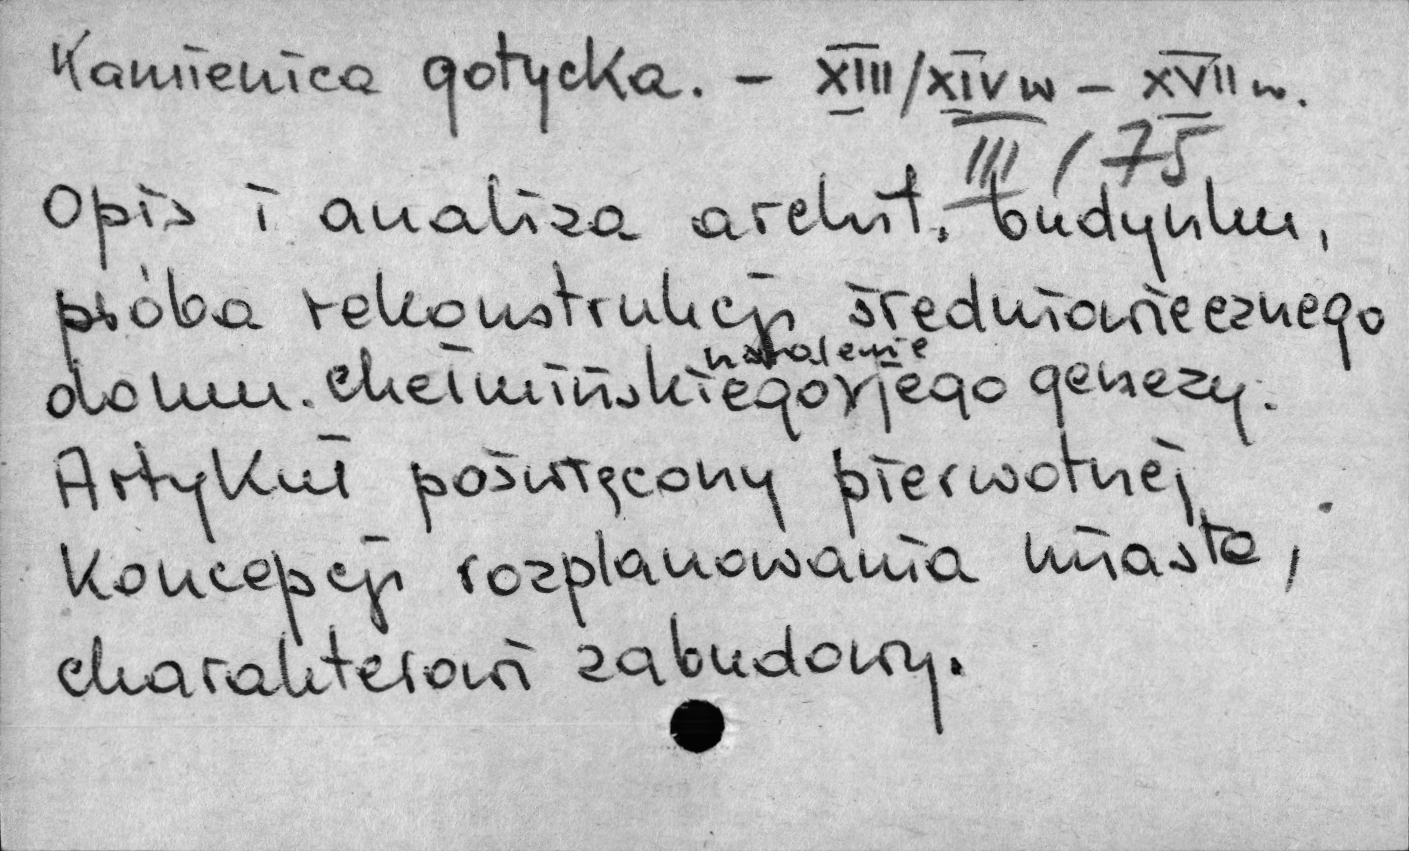 Kamienica gotycka. – XIII/XIV w – XVII w.
III / 75
Opis i analiza archit. budynku,
próba rekonstrukcji średniowiecznego
domu. chełmińskiego, ustalenie jego genezy.
Artykuł poświęcony pierwotnej
koncepcji rozplanowania miasta,
charakterowi zabudowy.